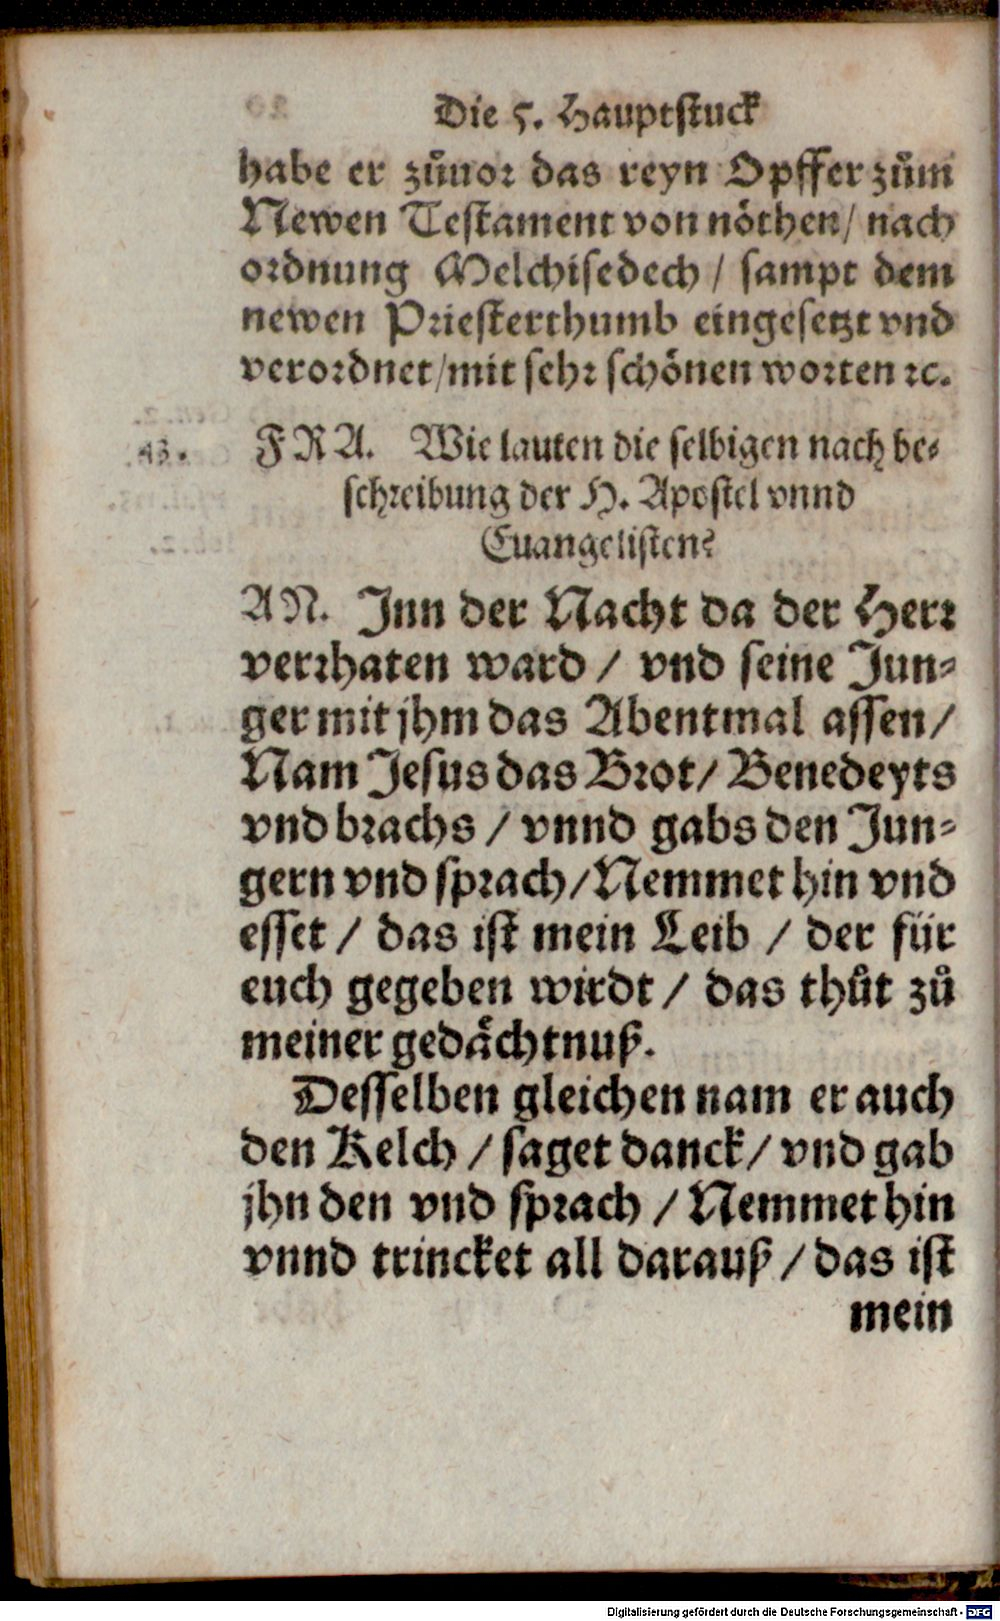 Die 5. Hauptstuck
habe er zůuor das reyn Opffer zům
Newen Testament von nöthen/ nach
ordnung Melchisedech / sampt dem
newen Priesterthumb eingesetzt vnd
verordnet/mit sehr schönen worten ꝛc.
43.
FRA. Wie lauten die selbigen nach be⸗
schreibung der H. Apostel vnnd
Euangelisten?
AN. Jnn der Nacht da der Herr
verrhaten ward / vnd seine Jun⸗
ger mit jhm das Abentmal assen/
Nam Jesus das Brot/ Benedeyts
vnd brachs / vnnd gabs den Jun⸗
gern vnd sprach/Nemmet hin vnd
esset / das ist mein Leib / der für
euch gegeben wirdt / das thůt zů
meiner gedächtnuß.
Desselben gleichen nam er auch
den Kelch / saget danck/ vnd gab
jhn den vnd sprach / Nemmet hin
vnnd trincket all darauß / das ist
mein
Digitalisierung gefördert durch die Deutsche Forschungsgemeinschaft - DFG